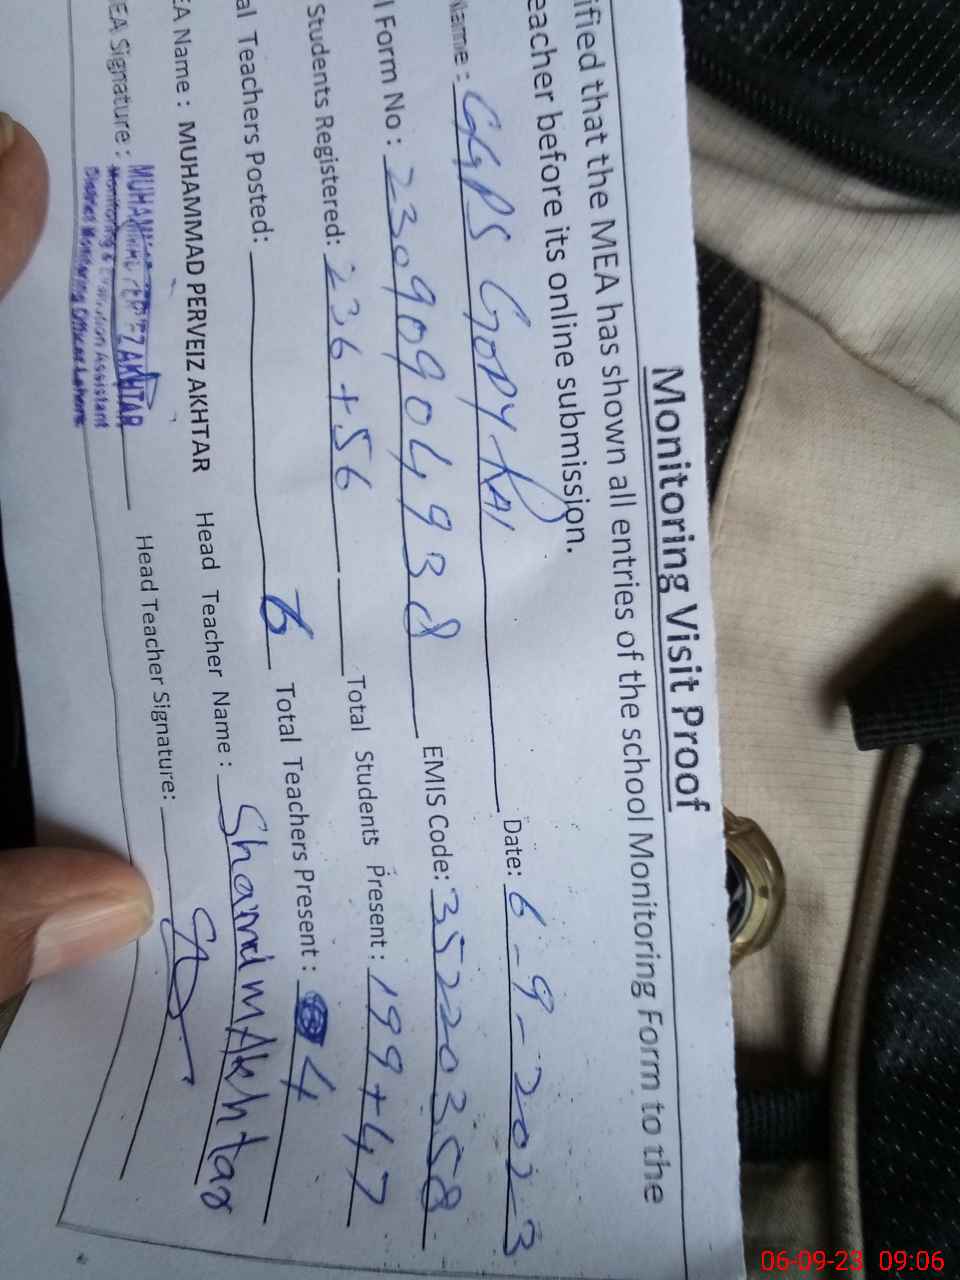 Monitoring Visit Proof
ified that the MEA has shown all entries of the school Monitoring Form to the
eacher before its online submission.
Name : GGPS GOPY RAI Date: 6-9-2023
l Form No : 23090904938 EMIS Code: 35220358
Students Registered: 236+56 Total Students Present : 199+47
al Teachers Posted: 6 Total Teachers Present : 4
EA Name : MUHAMMAD PERVEIZ AKHTAR Head Teacher Name : Akhtar
EA Signature : Head Teacher Signature:
MUHAMMAD PERVEZ AKHTAR
Monitoring & Evaluation Assistant
District Monitoring Officer Lahore
06-09-23 09:06